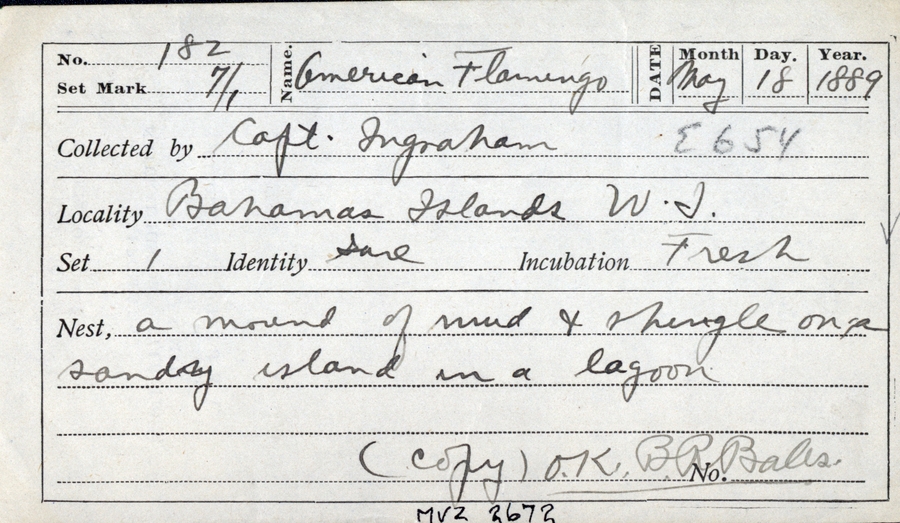 No. 182 Name. American Flamingo DATE Month Day. Year.
Set Mark 7/1 May 18 1889
Collected by Capt. Ingraham E654
Locality Bahamas Islands W.I.
Set 1 Identity Sure Incubation Fresh
Nest, a mound of mud & shingle on a
sandy island in a lagoon
(copy) O.K. B.R. Bales.
No.
MVZ 2672